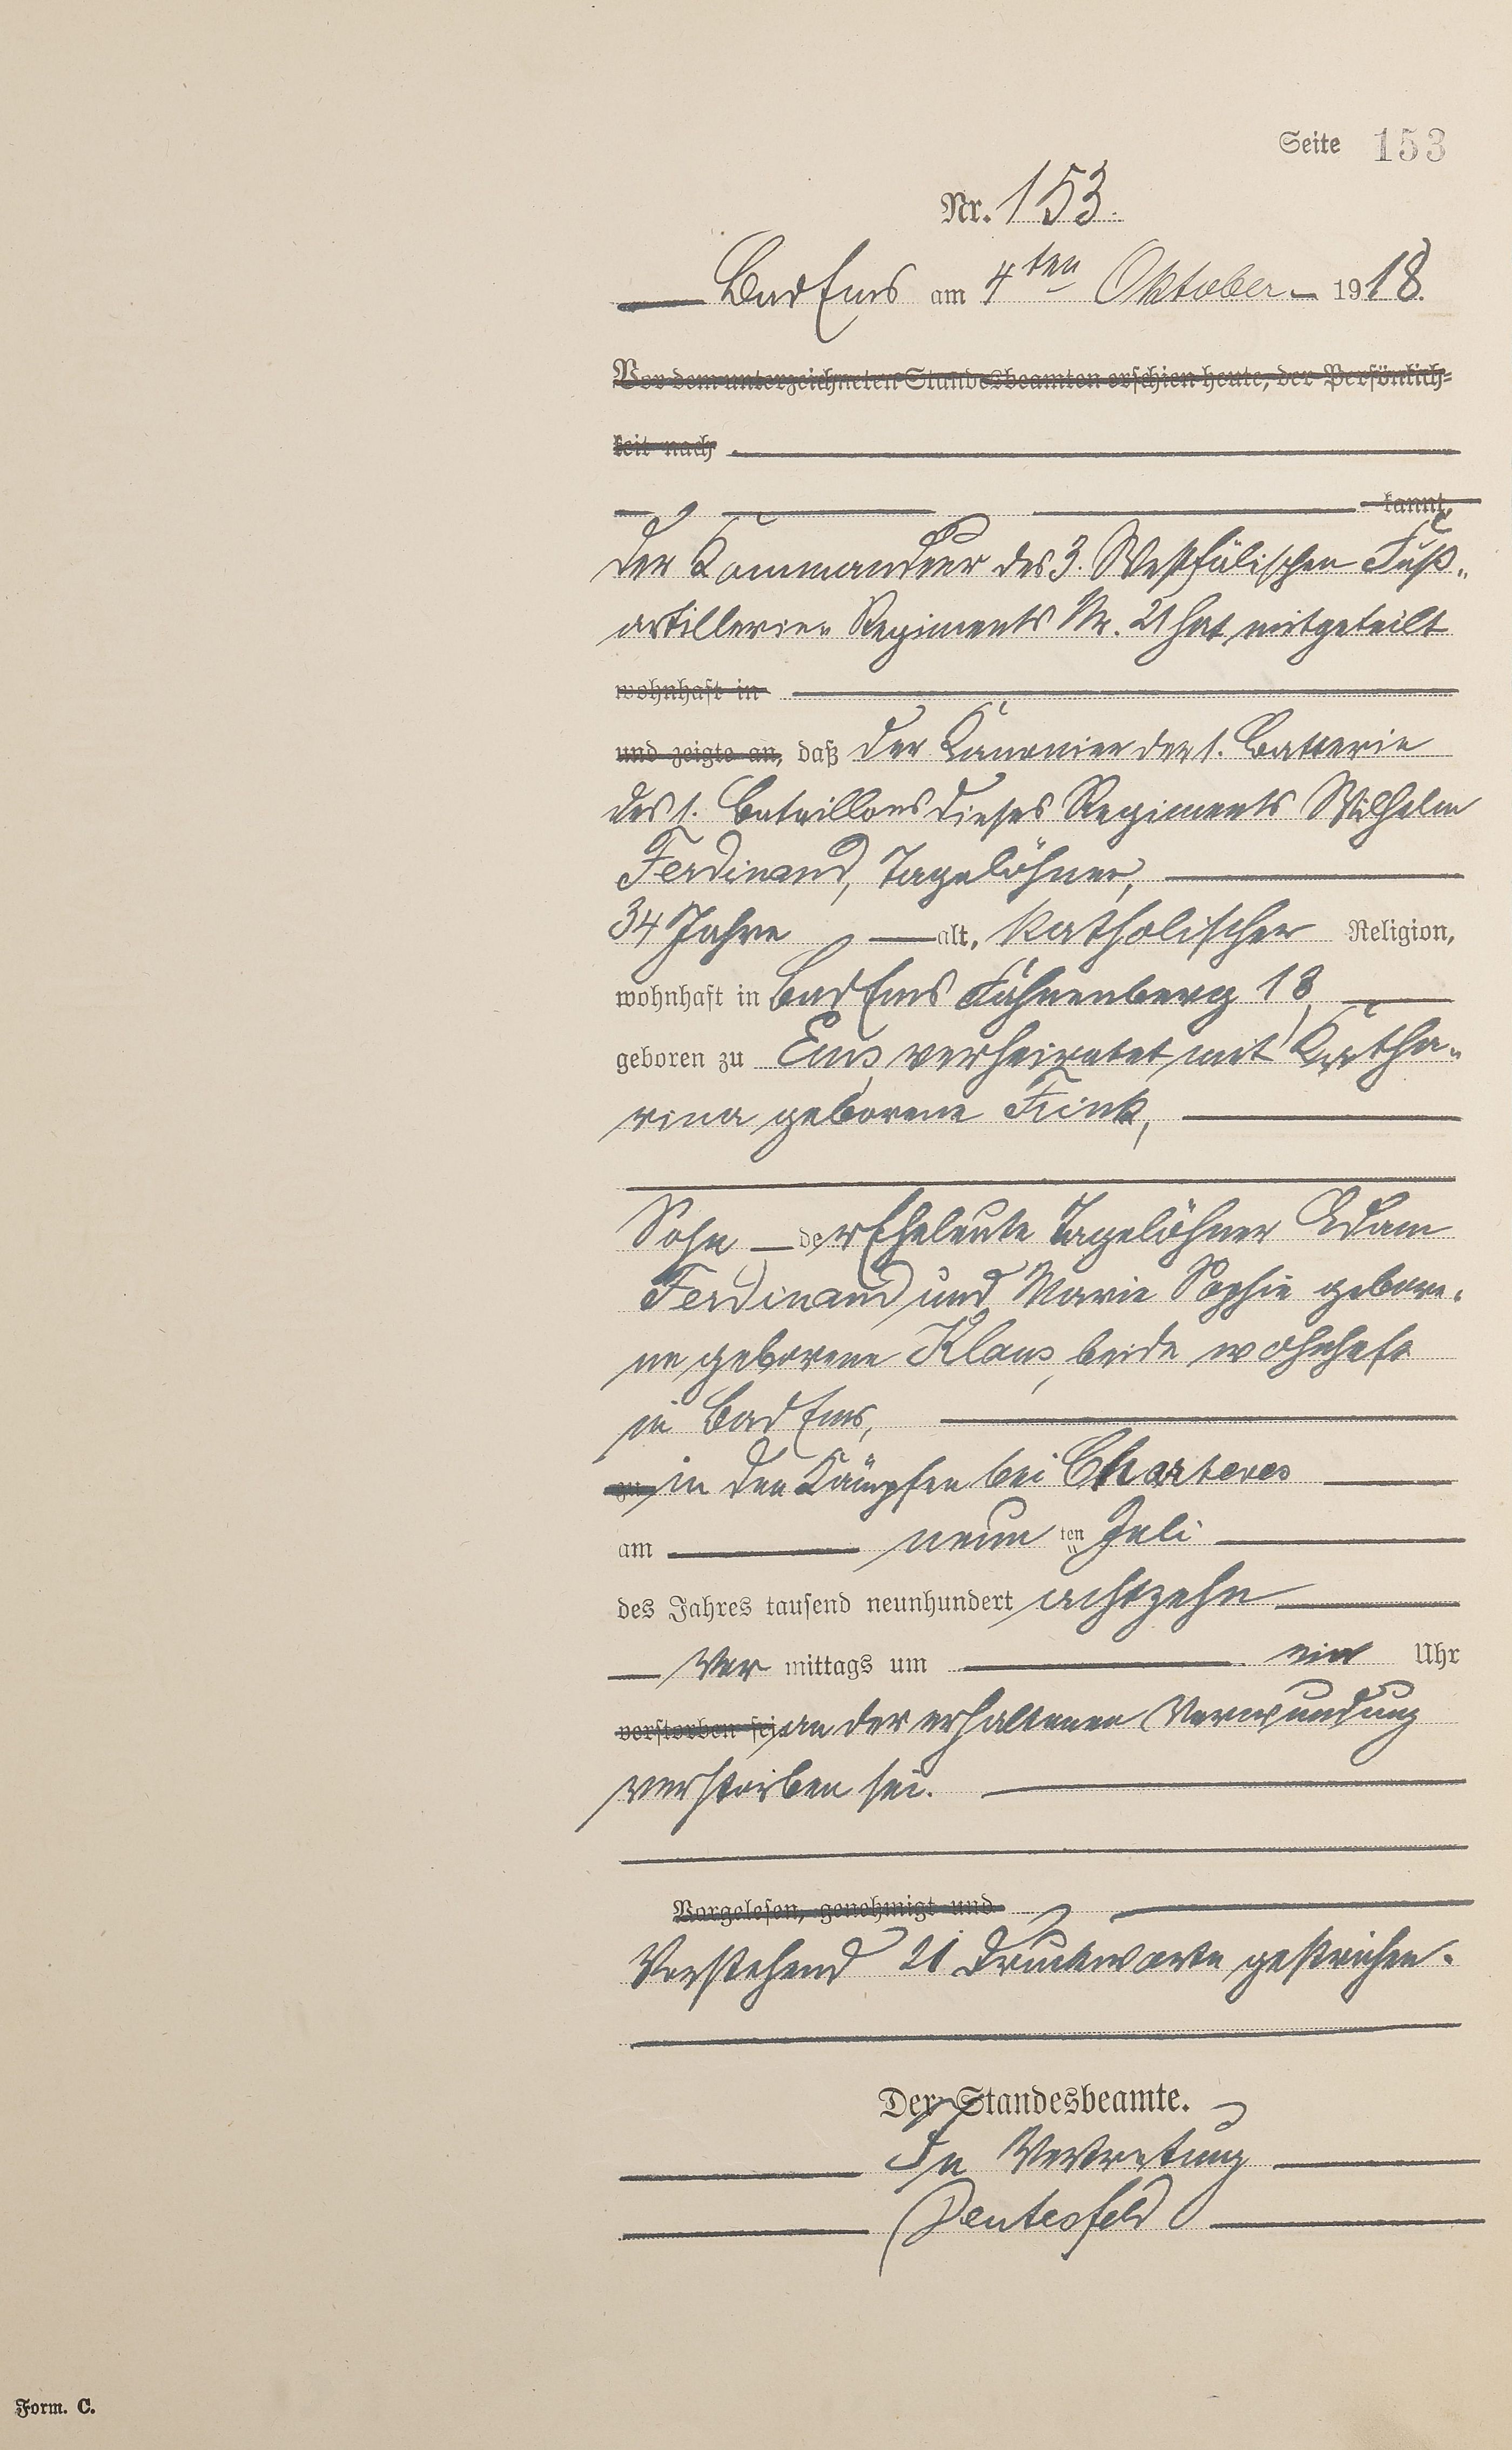 Seite 153
Nr. 153.
Bad Ems am 4ten Oktober 1918.
Vor dem unterzeichneten Standesbeamten erschien heute, der Persönlich-
keit nach
kannt,
der Kommandeur des 3. Westfälischen Fuß-
artillerie-Regiments Nr. 21 hat mitgeteilt
wohnhaft in
und zeigte an, daß der Kanonier der 1. Batterie
des 1. Bataillons dieses Regiments Wilhelm
Ferdinand, Tagelöhner,
34 Jahre alt, katholischer Religion,
wohnhaft in Bad Ems Fahnenberg 18,
geboren zu Ems, verheiratet mit Katha-
rina geborene Fink,
Sohn der Eheleute Tagelöhner Adam
Ferdinand und Marie Sophie gebore-
ne geborene Klaus, beide wohnhaft
in Bad Ems,
zu in den Kämpfen bei Charteves
am neun ten Juli
des Jahres tausend neunhundert achtzehn
Vor mittags um ein Uhr
verstorben sei. an der erhaltenen Verwundung
verstorben sei.
Vorgelesen, genehmigt und
Vorstehend 21 Druckworte gestrichen.
Der Standesbeamte.
In Vertretung
Form. C.